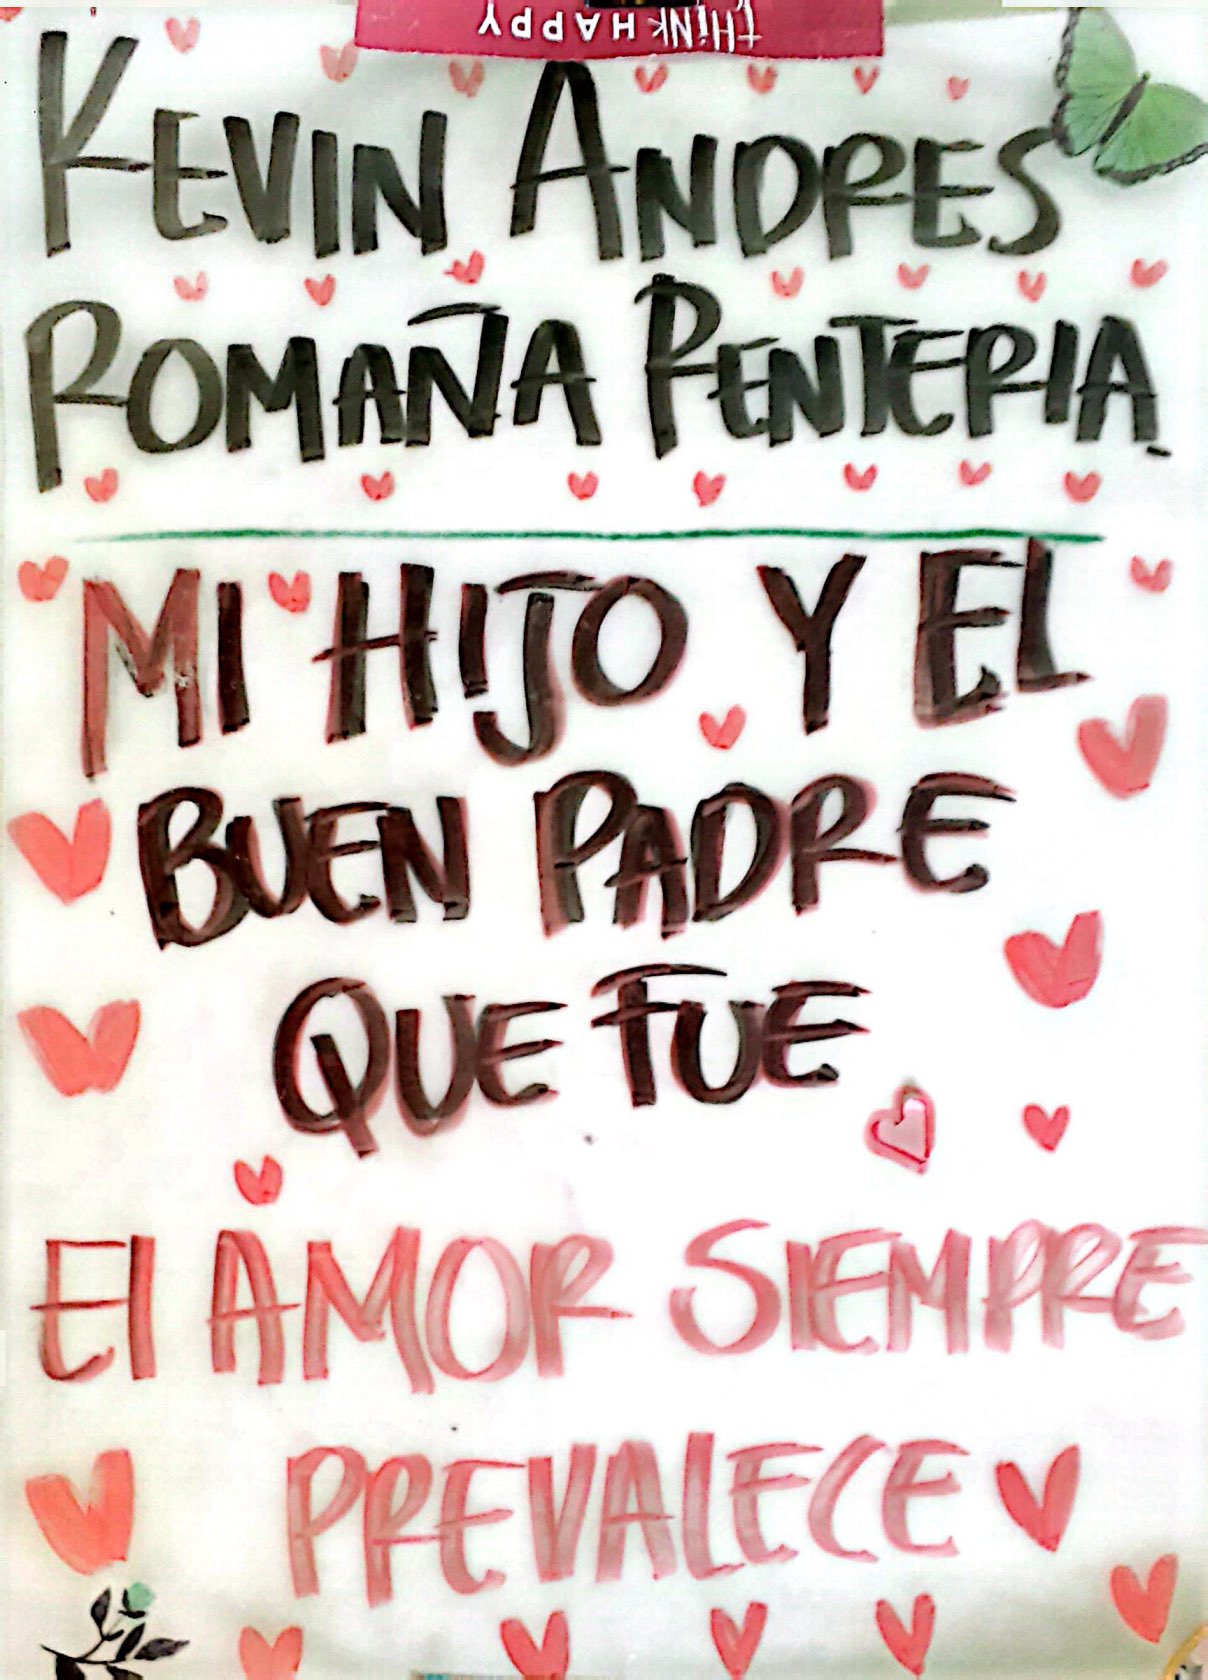 tHiNK HAPPY
KEVIN ANDRES
ROMAÑA RENTERIA.
MI HIJO Y EL
BUEN PADRE
QUE FUE
El AMOR SIEMPRE
PREVALECE